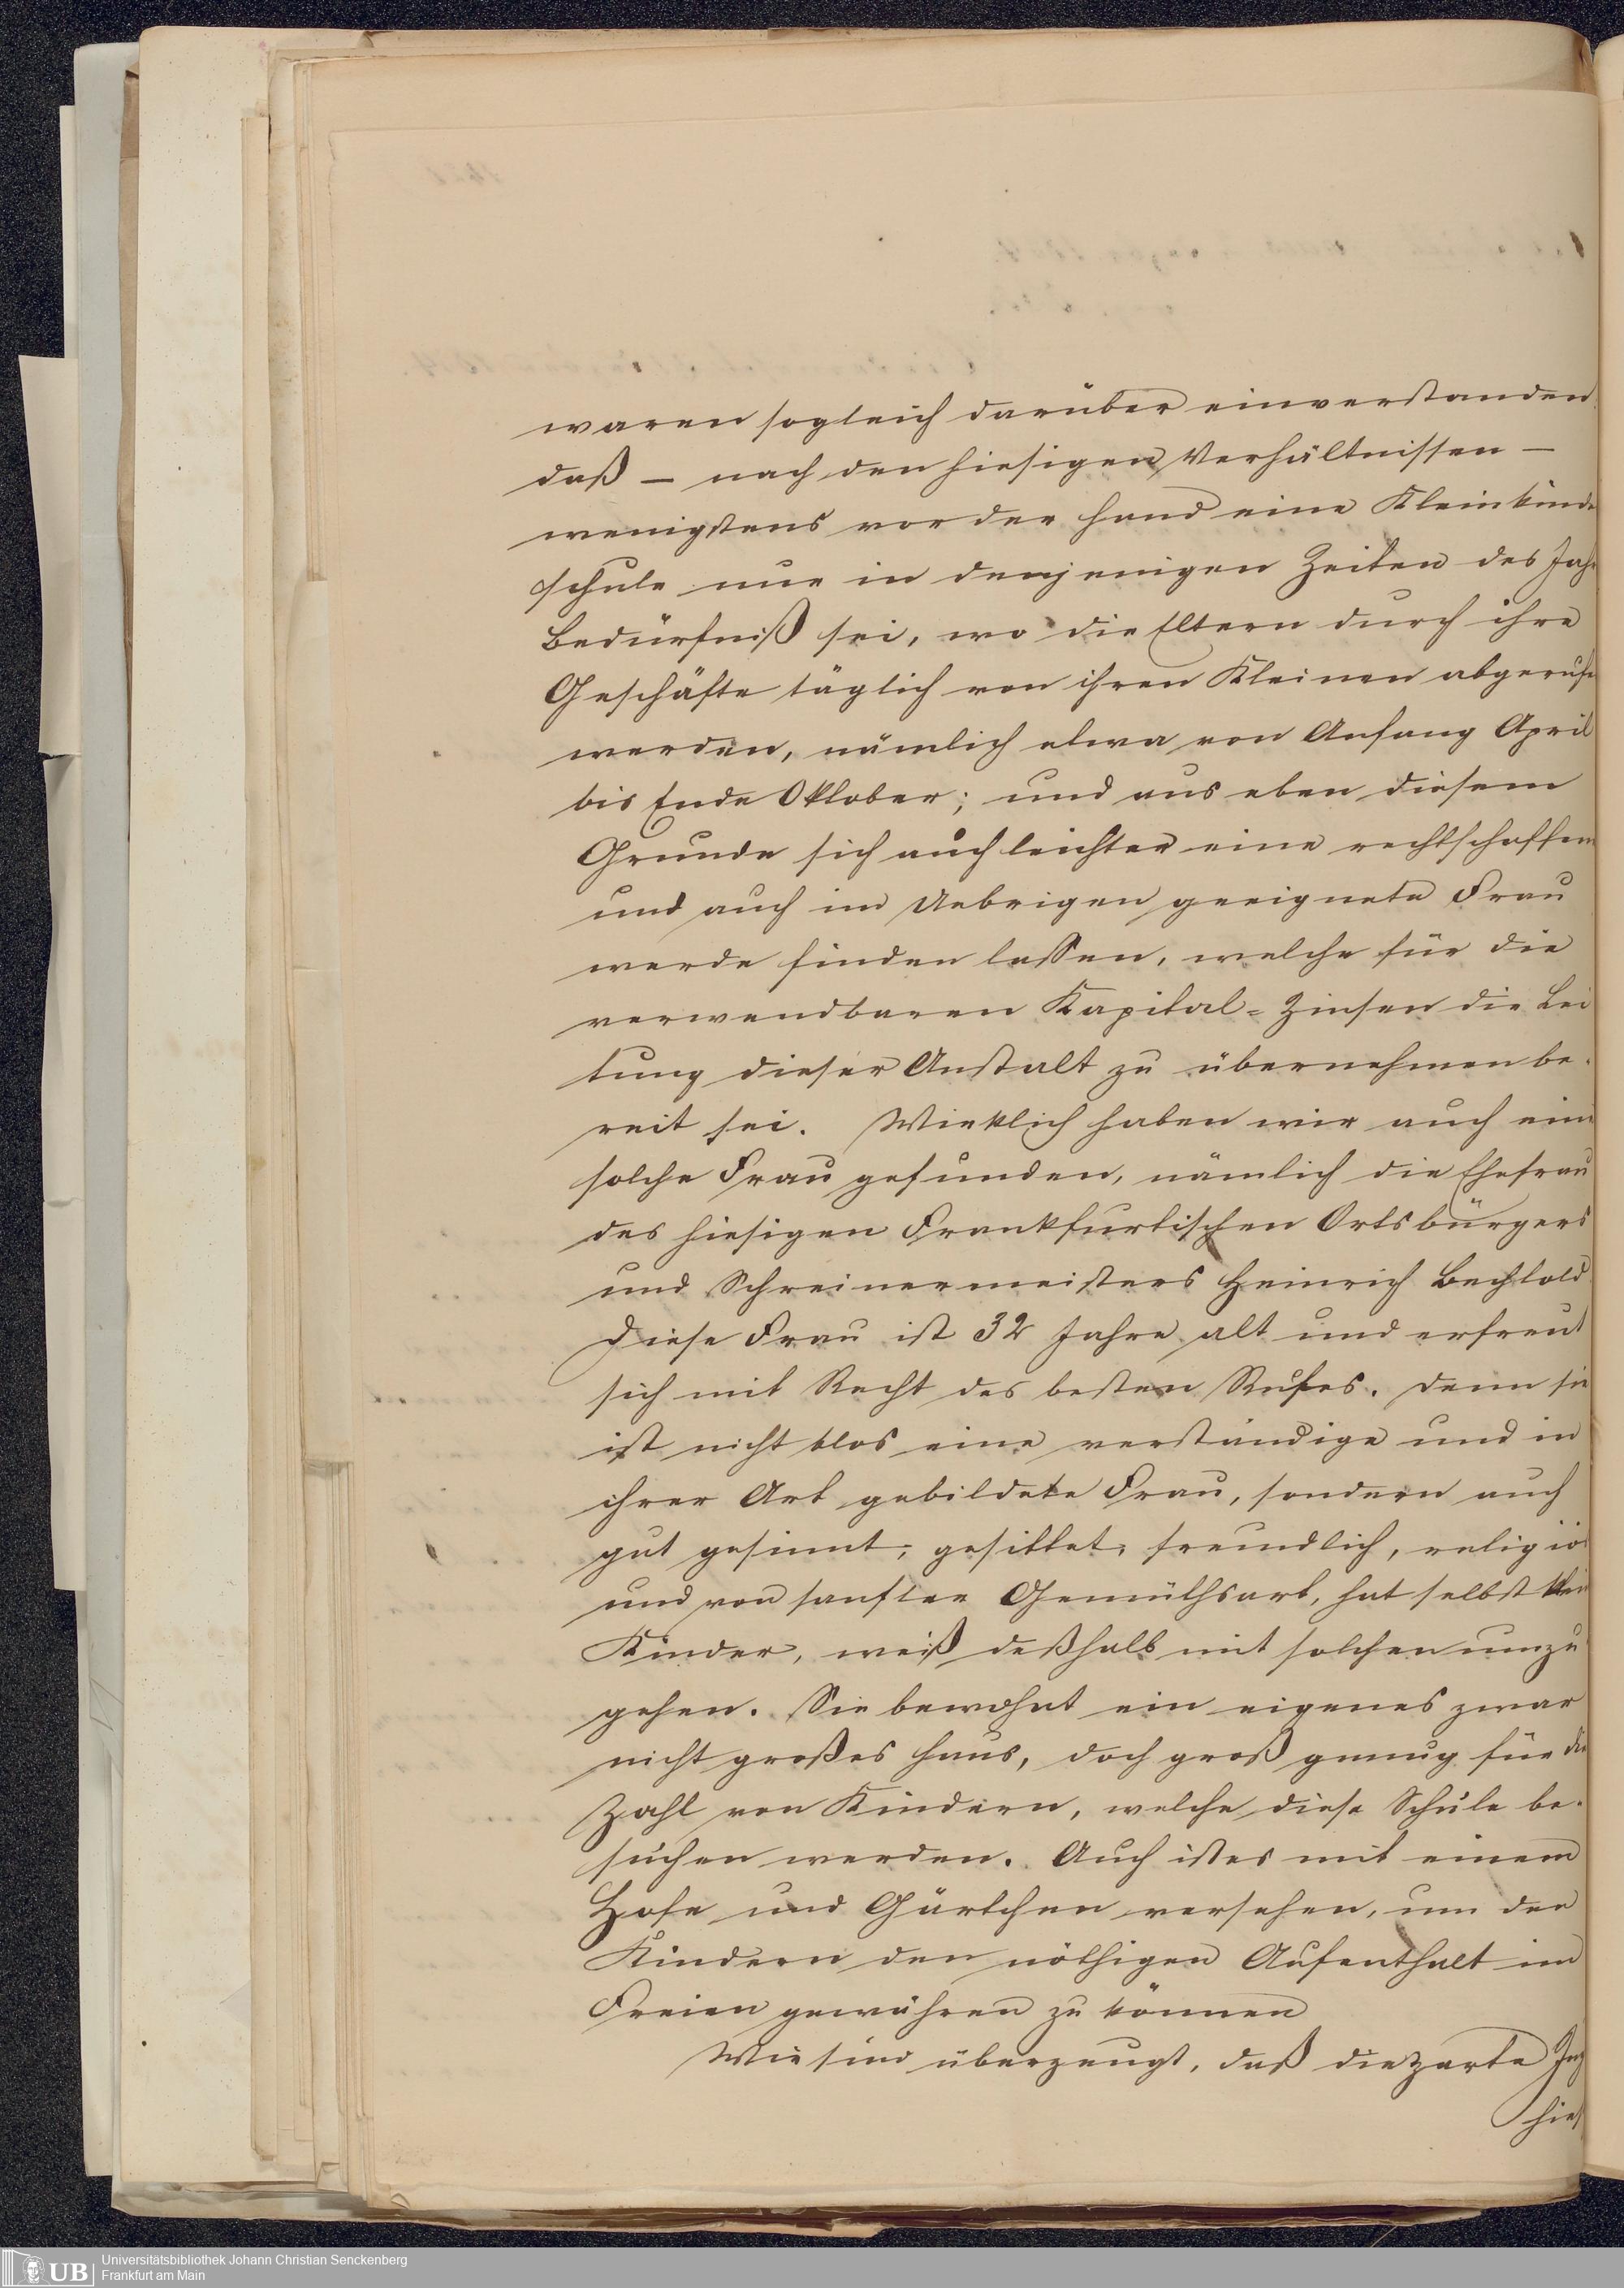 waren sogleich darüber einverstanden
daß – nach den hiesigen Verhältnissen –
wenigstens vor der Hand eine Kleinkinde
schule nur in denjenigen Zeiten des Jah
Bedürfniß sei, wo die Eltern durch ihre
Geschäfte täglich von ihren Kleinen abgerufe
werden, nämlich etwa von Anfang April
bis Ende Oktober; und aus eben diesem
Grunde sich auch leichter eine rechtschaffen
und auch im Uebrigen geeignete Frau
werde finden lassen, welche für die
verwendbaren Kapital-Zinsen die Lei
tung dieser Anstalt zu übernehmen be-
reit sei. Wirklich haben wir auch eine
solche Frau gefunden, nämlich die Ehefrau
des hiesigen Frankfurtischen Ortsbürgers
und Schreinermeisters Heinrich Bechtold
Diese Frau ist 32 Jahre alt und erfreut
sich mit Recht des besten Rufes. Denn sie
ist nicht blos eine verständige und in
ihrer Art gebildete Frau, sondern auch
gut gesinnt, gesittet, freundlich, religiö
und von sanfter Gemüthsart, hat selbst klei
Kinder, weiß deßhalb mit solchen umzu
gehen. Sie bewohnt ein eigenes zwar
nicht großes Haus, doch groß genug für die
Zahl von Kindern, welche diese Schule be-
suchen werden. Auch ist es mit einem
Hofe und Gärtchen versehen, um den
Kindern den nöthigen Aufenthalt im
Freien gewähren zu können
Wir sind überzeugt, daß die zarte Jug
hies
Universitätsbibliothek Johann Christian Senckenberg
UB Frankfurt am Main